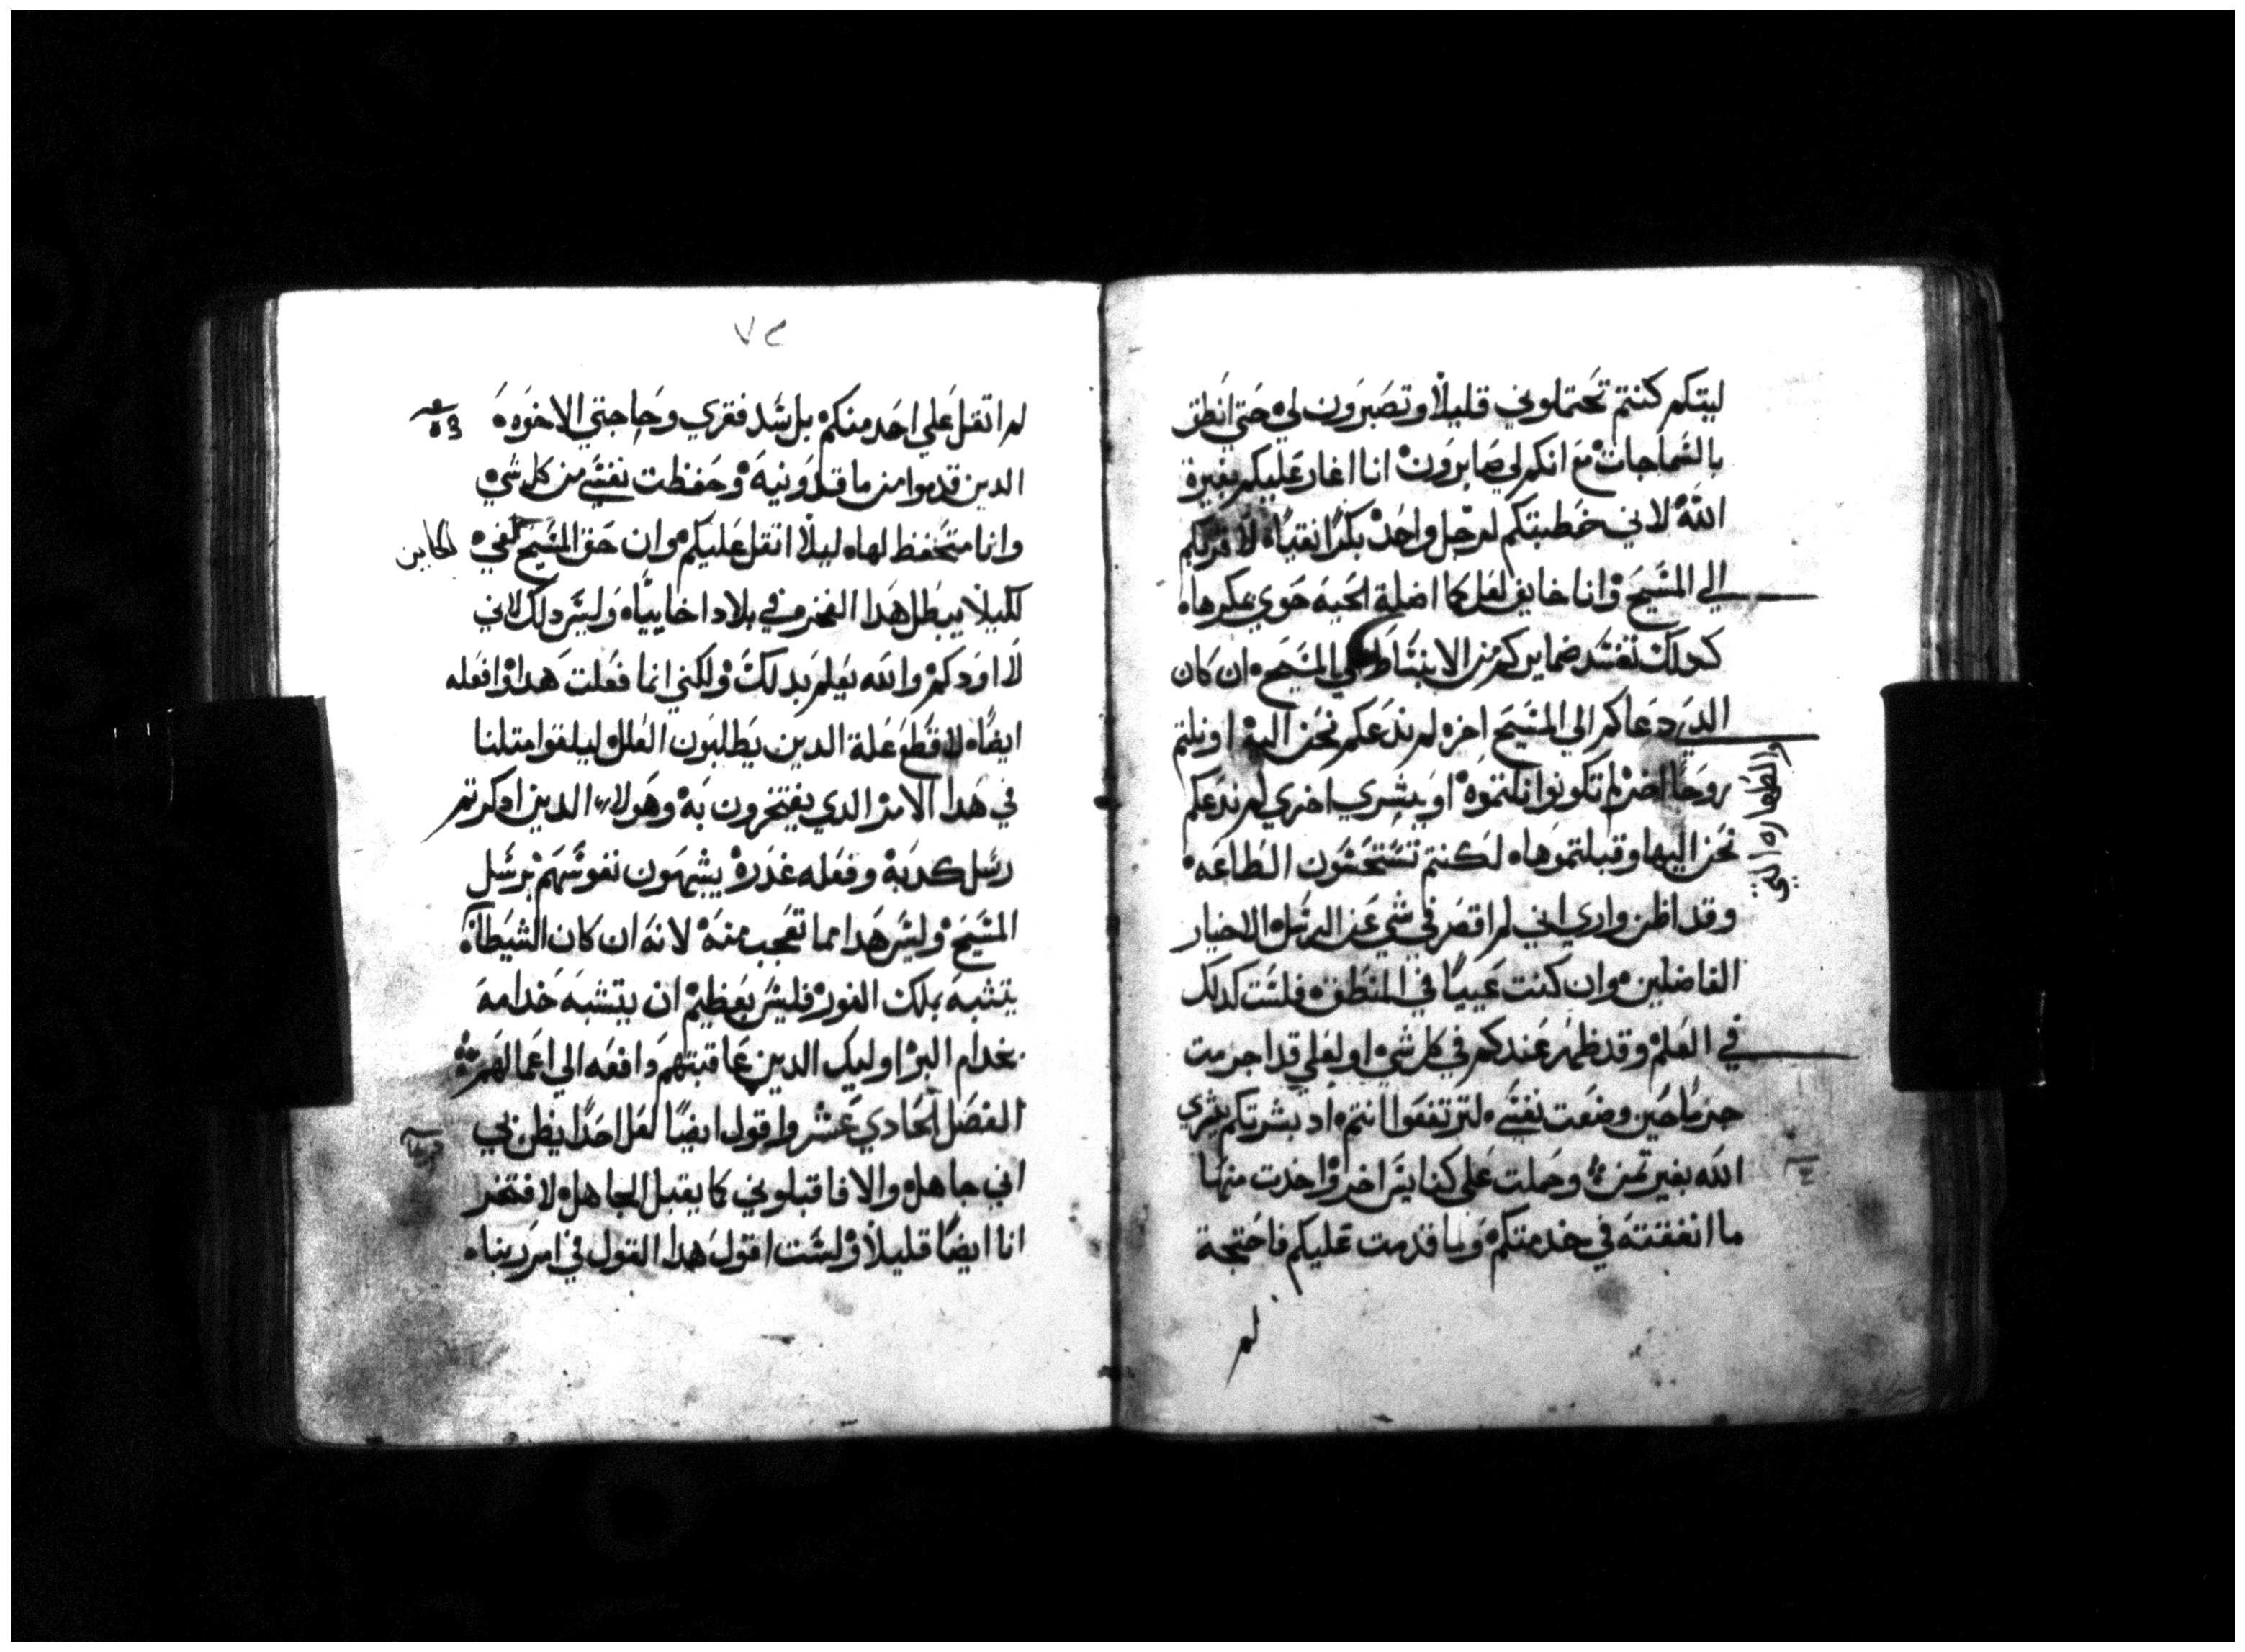 ليتكم كنتم تحتملوني قليلاً وتصبرون لي حتي انطق
بالسماجات مع انكم لي صابرون انا اغار عليكم بغيرة
الله لاني خطبتكم لرجل واحد بكرا نقيا لاقربكم
الي المسيح وانا خايف لعل كما اضلة الحية حوي بمكرها
كدلك تفسد ضمايركم من الانبساط الي المسيح ان كان
الدي دعاكم الي المسيح اخر لم ندعكم نحن اليه او نلتم
روحا اخر لم تكونوا نلتموه او بشري اخري لم ندعكم
نحن اليها وقبلتموها لكنتم تستحسنون الطاعه
والطهاره التي
وقد اظن واري اني لم اقصر في شي عن الرسل الاخيار
الفاضلين وان كنت عييا في المنطق فلست كدلك
في العلم وقد ظهر عندكم في كل شي او لعلي قد اجرمت
جرما حين وضعت نفسي لترتفعوا انتم اد بشرتكم بشري
الله بغير تمن وحملت علي كنايس اخر واخدت منها
ما انفقته في خدمتكم وما قدمت عليكم فاحتجة
لم
٧٢
لم اتقل علي احد منكم بل سد فقري وحاجتي الاخوه
الدين قدموا من ماقدونيه وحفظت نفسي من كل شي
وانا متحفظ لها ليلا اتقل عليكم وان حق المسيح لفي
لكيلا يبطل هدا الفخر مني في بلاد اخاييا وليس دلك لاني
لا اودكم والله يعلم بدلك ولكني انما فعلت هدا وافعله
ايضا لاقطع علة الدين يطلبون العلل ليلفوا متلنا
في هدا الامر الدي يفتخرون به وهولاء الدين ادكرتم
رسل كدبة وفعله غدرة يشبهون نفوسهم برسل
المسيح وليس هدا مما تعجب منه لانه ان كان الشيطان
يتشبه بملك النور فليس بعظيم ان يتشبه خدامه
بخدام البر اوليك الدين عاقبتهم دافعه الي اعمالهم
الفصل الحادي عشر واقول ايضا لعل احدا يظن بي
اني جاهل والا فاقبلوني كما يقبل الجاهل لافتخر
انا ايضا قليلا ولست اقول هدا القول في امر ربنا